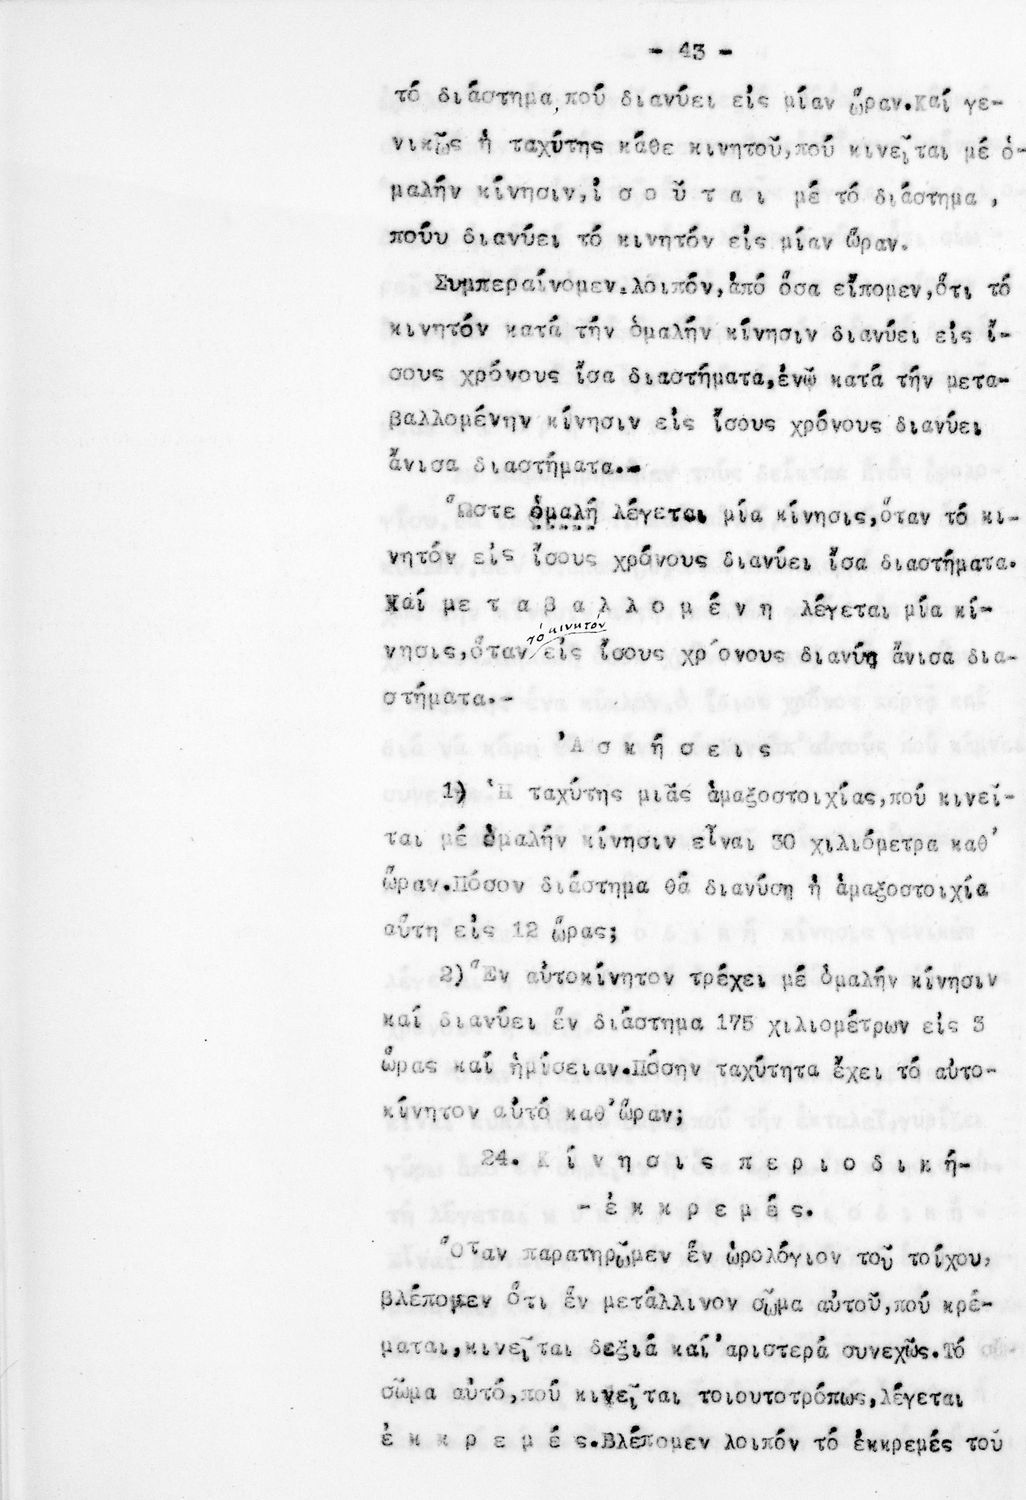 - 43 -
τό διάστημα, πού διανύει εἰς μίαν ὥραν.Καί γε-
νικῶς ἡ ταχύτης κάθε κινητοῦ,πού κινεῖται μέ ὁ-
μαλήν κίνησιν,ἰ σ ο ῦ τ α ι μέ τό διάστημα ,
πούυ διανύει τό κινητόν εἰς μίαν ὥραν.
Συμπεραίνομεν.λοιπόν,ἀπό ὅσα εἴπομεν,ὅτι τό
κινητόν κατά τήν ὁμαλήν κίνησιν διανύει εἰς ἴ-
σους χρόνους ἴσα διαστήματα,ἐνῶ κατά τήν μετα-
βαλλομένην κίνησιν εἰς ἴσους χρόνους διανύει
ἄνισα διαστήματα.-
Ὥστε ὁμαλή λέγεται μία κίνησις,ὅταν τό κι-
νητόν εἰς ἴσους χρόνους διανύει ἴσα διαστήματα.
Καί μ ε τ α β α λ λ ο μ έ ν η λέγεται μία κί-
τό κινητόν
νησις,ὅταν εἰς ἴσους χρόνους διανύῃ ἄνισα δια-
στήματα.-
Ἀ σ κ ή σ ε ι ς
1) Ἡ ταχύτης μιᾶς ἁμαξοστοιχίας,πού κινεῖ-
ται μέ ὁμαλήν κίνησιν εἶναι 30 χιλιόμετρα καθ'
ὥραν.Πόσον διάστημα θά διανύσῃ ἡ ἁμαξοστοιχία
αὕτη εἰς 12 ὥρας;
2) Ἕν αὐτοκίνητον τρέχει μέ ὁμαλήν κίνησιν
καί διανύει ἕν διάστημα 175 χιλιομέτρων εἰς 3
ὥρας καί ἡμίσειαν.Πόσην ταχύτητα ἔχει τό αὐτο-
κίνητον αὐτό καθ'ὥραν;
24. Κ ί ν η σ ι ς π ε ρ ι ο δ ι κ ή-
- ἐ κ κ ρ ε μ έ ς.
Ὅταν παρατηρῶμεν ἕν ὡρολόγιον τοῦ τοίχου,
βλέπομεν ὅτι ἕν μετάλλινον σῶμα αὐτοῦ,πού κρέ-
μαται,κινεῖται δεξιά καί ἀριστερά συνεχῶς.Τό
σῶμα αὐτό,πού κινεῖται τοιουτοτρόπως,λέγεται
ἐ κ κ ρ ε μ έ ς.Βλέπομεν λοιπόν τό ἐκκρεμές τοῦ